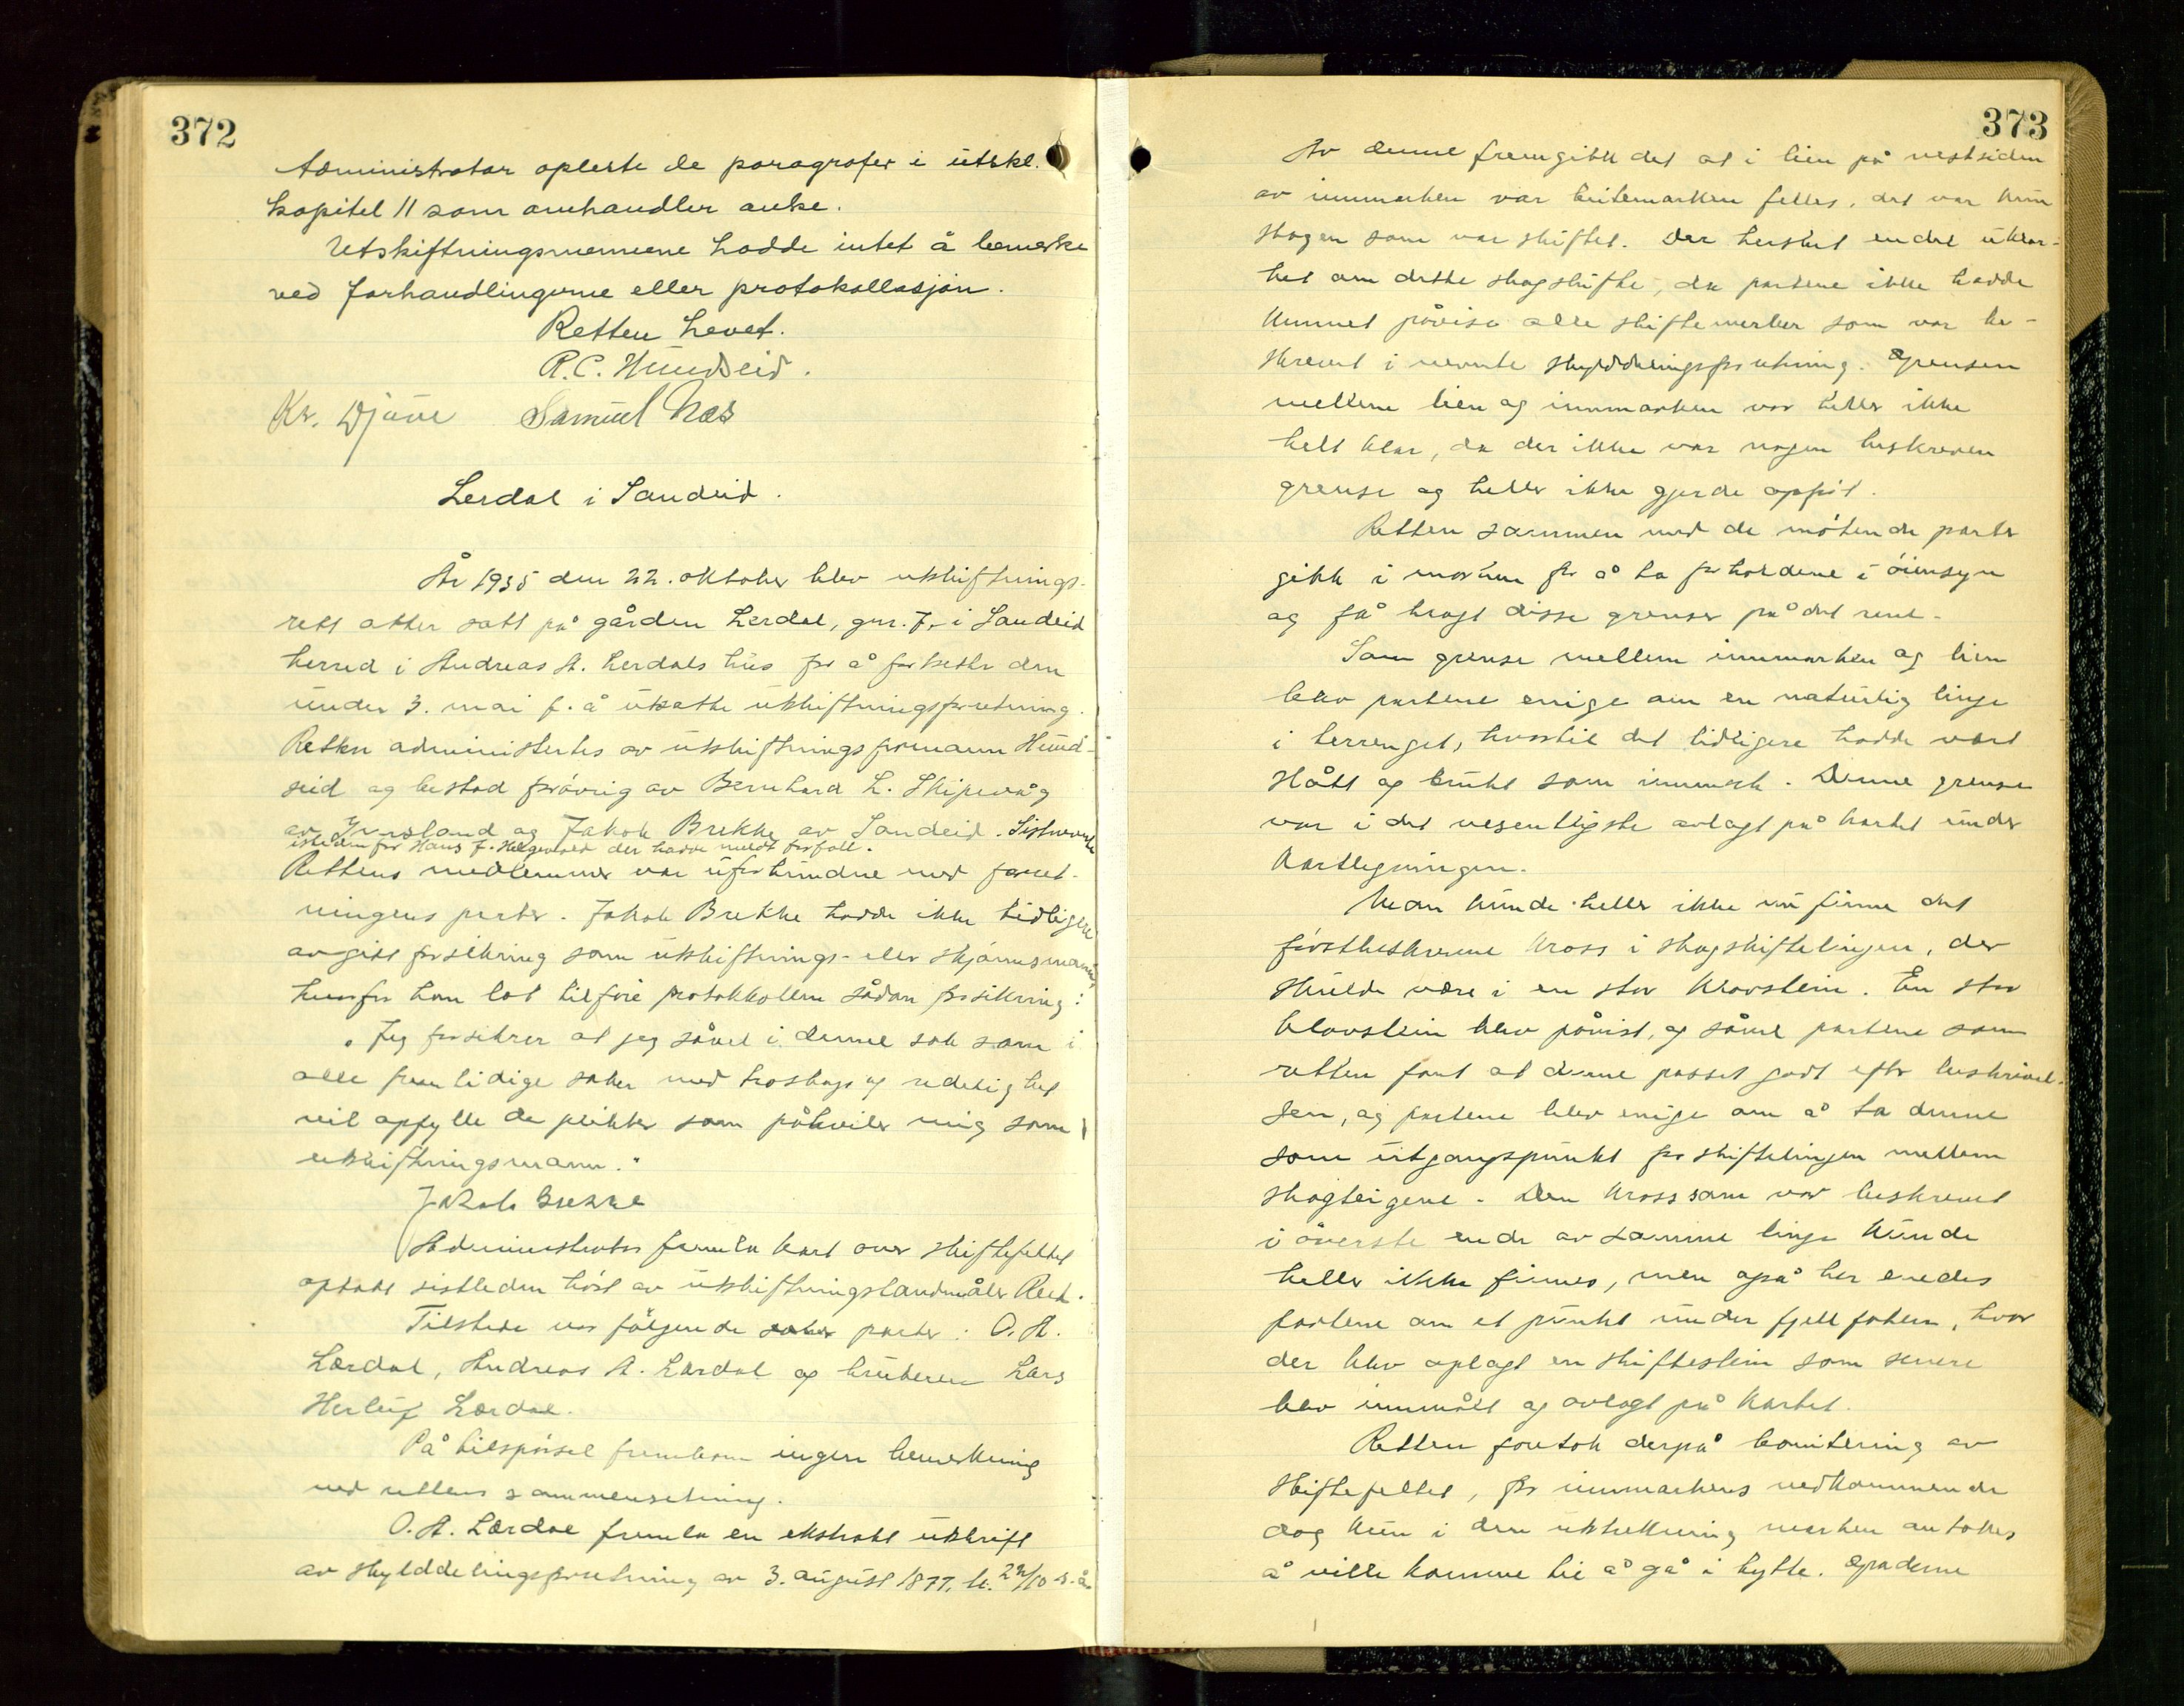 372
Administrator opleste de paragrafer i utskl.
kapitel 11 som omhandler anke.
Utskiftningsmennene hadde intet å bemerke
ved forhandlingerne eller protokollasjon.
Retten hevet.
R. C. Hundseid.
Kr. Djuve Samuel Næs
Lerdal i Sandeid.
År 1935 den 22. oktober blev utskiftnings-
rett atter satt på gården Lerdal, gnr. 7, i Sandeid
herred i Andreas A. Lerdals hus for å fortsette den
under 3. mai f. å utsatte utskiftningsforretning.
Retten administertes av utskiftningsformann Hund-
seid og bestod forøvrig av Bernhard L. Skipevåg
av og Jakob Brekke av Sandeid. Sistnevnte
istedenfor Hans F. der hadde meldt forfall.
Rettens medlemmer var uforhindne med forret-
ningens parter. Jakob Brekke hadde ikke tidligere
avgitt forsikring som utskiftnings- eller skjønnsmann,
hvorfor han lot tilføie protokkollen sådan forsikring:
"Jeg forsikrer at jeg såvel i denne sak som i
alle fremtidige saker med troskap og redelighet
vil opfylle de plikter som påhviler mig som
utskiftningsmann."
Jakob Brekke
Administrator fremla kart over skiftefeltet
optatt sistleden høst av utskiftningslandmåler
Tilstede var følgende saker parter: O. A.
Lærdal, Andreas A. Lærdal og brukeren Lars
Herleif Lærdal.
På tilspørsel fremkom ingen bemerkning
ved rettens sammensetning.
O. A. Lærdal fremla en ekstrakt utskrift
av skylddelingsforretning av 3. august 1877, tl. 22/10 s. å.
373
Av denne fremgikk det at i lien på vestsiden
av innmarken var beitemarken felles, det var kun
skogen som var skiftet. Der hersket endel uklar-
het om dette skogskifte, da partene ikke hadde
kunnet påvise alle skiftemerker som var be-
skrevet i nevnte skylddelingsforretning. Grensen
mellem lien og innmarken var heller ikke
helt klar, da der ikke var nogen beskreven
grense og heller ikke gjerde opført.
Retten sammen med de møtende parter
gikk i marken for å ta forholdene i øiensyn
og få bragt disse grenser på det rene.
Som grense mellem innmarken og lien
blev partene enige om en naturlig linje
i terrenget, hvortil det tidligere hadde vært
slått og brukt som innmark. Denne grense
var i det vesentligste avlagt på kartet under
kartlegningen.
Man kunde heller ikke nu finne det
førstbeskrevne kross i skogskiftelinjen, der
skulde være i en stor klovstein. En stor
klovstein blev påvist, og såvel partene som
retten fant at denne passet godt efter beskrivel-
sen, og partene blev enige om å ta denne
som utgangspunkt for skiftelinjen mellem
skogteigene. Den kross som var beskrevet
i øverste ende av samme linje kunde
heller ikke finnes, men også her enedes
partene om et punkt under fjellfoten, hvor
der blev oplagt en skiftestein som senere
blev innmålt og avlagt på kartet.
Retten foretok derpå bonitering av
skiftefeltet, for innmarkens vedkommende
dog kun i den utstrekning marken antokes
å ville komme til å gå i bytte. Graderne